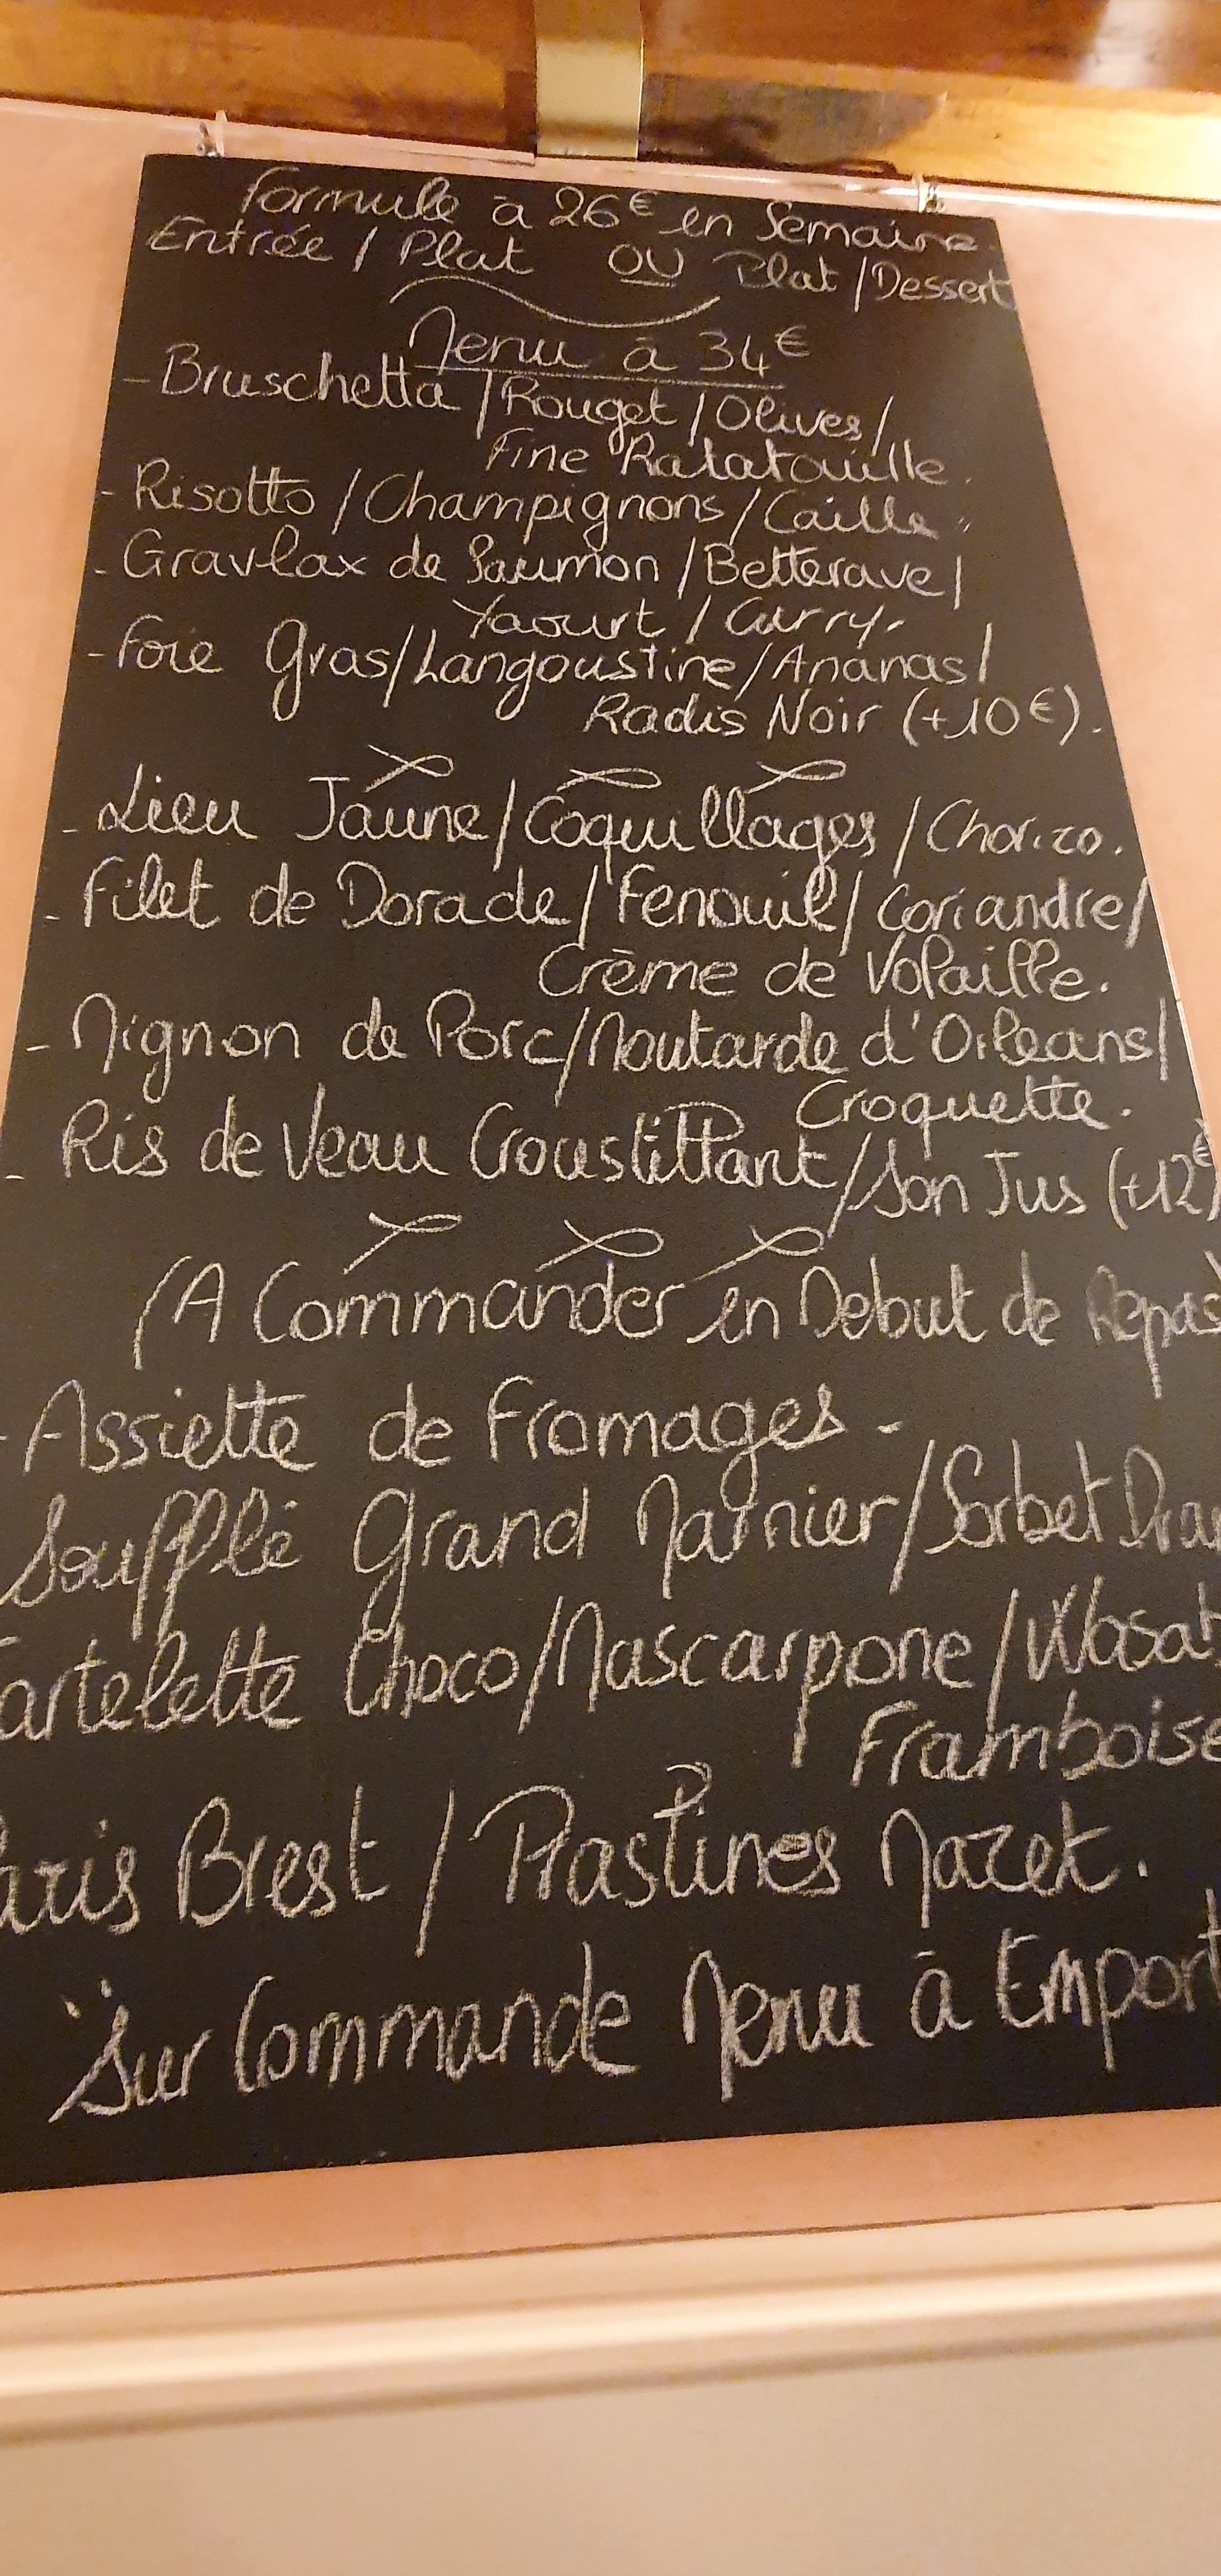 Formule à 26€ en Semaine
Entrée / Plat OU Plat / Dessert
Menu à 34€
- Bruschetta / Rouget / Olives /
Fine Ratatouille.
- Risotto / Champignons / Caille.
- Gravlax de Saumon / Betterave /
Yaourt / Curry.
- Foie Gras / Langoustine / Ananas /
Radis Noir (+10€).
- Lieu Jaune / Coquillages / Chorizo.
- Filet de Dorade / Fenouil / Coriandre /
Crème de Volaille.
- Mignon de Porc / Moutarde d'Orléans /
Croquette.
- Ris de Veau Croustillant / Son Jus (+12€)
(A Commander en Debut de Repas)
- Assiette de Fromages.
Soufflé Grand Marnier / Sorbet
Tartelette Choco / Mascarpone / Wasab
Framboise
Paris Brest / Praslines Mazet.
Sur Commande Menu à Emport